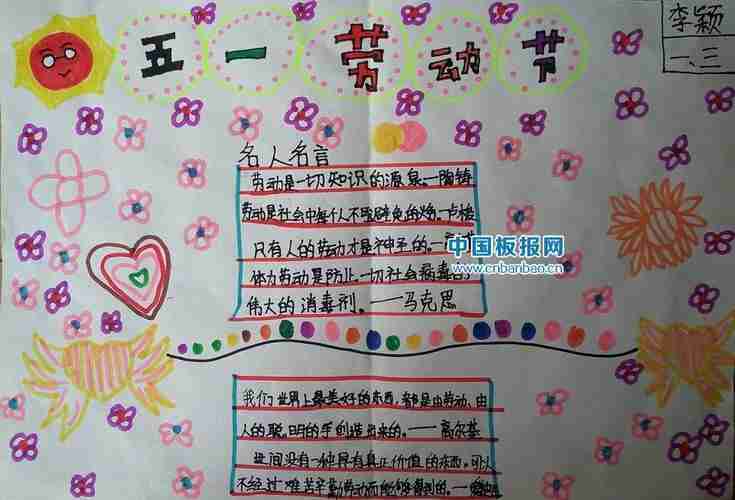 五一劳动节
李颖
一、三
名人名言
劳动是一切知识的源泉。—陶铸
劳动是社会中每个人不可避免的义务。—卢梭
只有人的劳动才是神圣的。—高
中国板报网
www.cnbanbao.cn
体力劳动是防止一切社会病毒的
伟大的消毒剂。——马克思
我们世界上最美好的东西,都是由劳动、由
人的聪明的手创造出来的。——高尔基
世间没有一种具有真正价值的东西,可以
不经过艰苦辛勤劳动而能够得到的。—